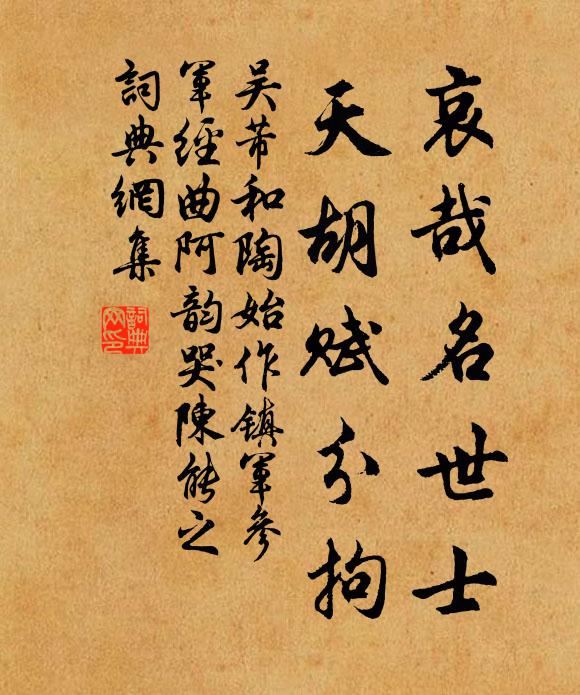 哀哉名世士
天胡赋分拘
吴芾和陶始作镇军参
军经曲阿韵哭陈能之
词典网集
词典网印